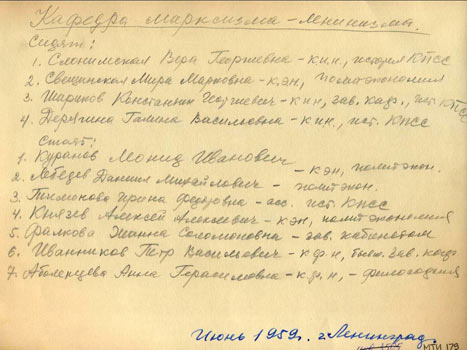 Кафедра марксизма-ленинизма.
Сидят:
1. Слонимская Вера Георгиевна - к.и.н., история КПСС
2. Свещинская Мира Марковна - к.эн, политэкономия
3. Шарипов Константин Георгиевич - к и н, зав. каф., ист. КПСС
4. Дерягина Галина Васильевна - к и.н., ист. КПСС
Стоят:
1. Куранов Леонид Иванович - к эн, политэкон.
2. Лебедев Даниил Михайлович - политэкон.
3. Тихонова Ирина Федоровна - асс. ист КПСС
4. Князев Алексей Алексеевич - к эн, политэкономия
5. Фалкова Жанна Соломоновна - зав. кабинетом
6. Иванников Петр Васильевич - к ф н, бывш. зав. каф
7. Аболенцева Анна Герасимовна - к.ф.н, - философия
Июнь 1959г. г. Ленинград.
МТИ 179